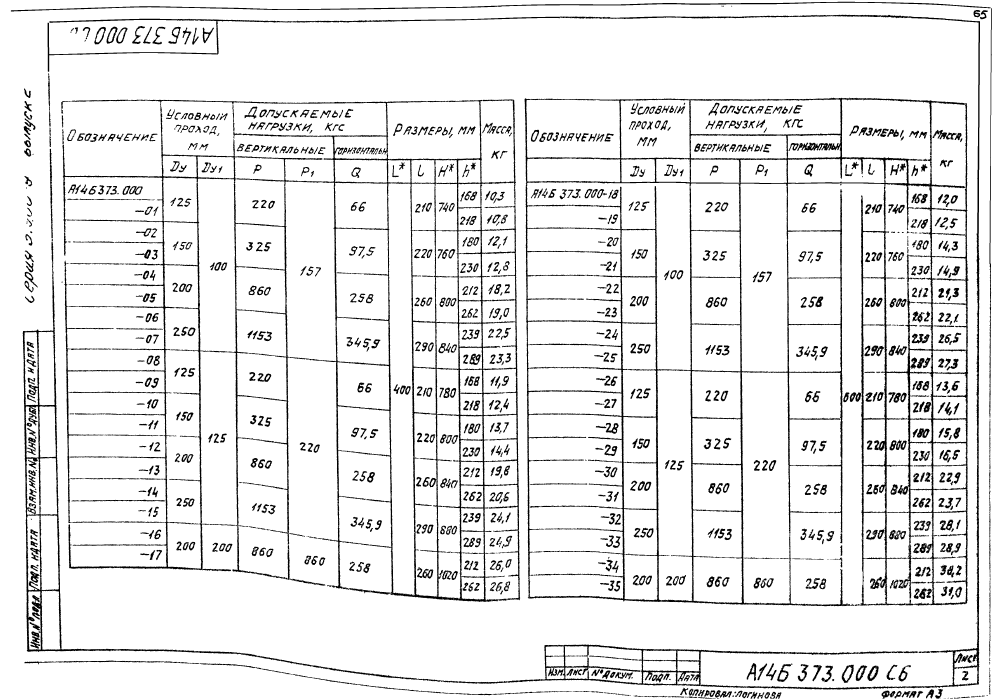 65
А14Б 373 000 СБ
ОБОЗНАЧЕНИЕ | УСЛОВНЫЙ ПРОХОД, ММ | ДОПУСКАЕМЫЕ НАГРУЗКИ, КГС | РАЗМЕРЫ, ММ | МАССА, КГ
ВЕРТИКАЛЬНЫЕ | ГОРИЗОНТАЛЬН
Ду | Ду1 | Р | Р1 | Q | L* | l | H* | h*
А14Б373.000 | 125 | 100 | 220 | 157 | 66 | 400 | 210 | 740 | 168 | 10,3
-01 | 218 | 10,8
-02 | 150 | 325 | 97,5 | 220 | 760 | 180 | 12,1
-03 | 230 | 12,8
-04 | 200 | 860 | 258 | 260 | 800 | 212 | 18,2
-05 | 262 | 19,0
-06 | 250 | 1153 | 345,9 | 290 | 840 | 239 | 22,5
-07 | 289 | 23,3
-08 | 125 | 125 | 220 | 220 | 66 | 210 | 780 | 168 | 11,9
-09 | 218 | 12,4
-10 | 150 | 325 | 97,5 | 220 | 800 | 180 | 13,7
-11 | 230 | 14,4
-12 | 200 | 860 | 258 | 260 | 840 | 212 | 19,8
-13 | 262 | 20,6
-14 | 250 | 1153 | 345,9 | 290 | 880 | 239 | 24,1
-15 | 289 | 24,9
-16 | 200 | 200 | 860 | 860 | 258 | 260 | 1020 | 212 | 26,0
-17 | 262 | 26,8
ОБОЗНАЧЕНИЕ | УСЛОВНЫЙ ПРОХОД, ММ | ДОПУСКАЕМЫЕ НАГРУЗКИ, КГС | РАЗМЕРЫ, ММ | МАССА, КГ
ВЕРТИКАЛЬНЫЕ | ГОРИЗОНТАЛЬН
Ду | Ду1 | Р | Р1 | Q | L* | l | H* | h*
А14Б 373.000-18 | 125 | 100 | 220 | 157 | 66 | 800 | 210 | 740 | 168 | 12,0
-19 | 218 | 12,5
-20 | 150 | 325 | 97,5 | 220 | 760 | 180 | 14,3
-21 | 230 | 14,9
-22 | 200 | 860 | 258 | 260 | 800 | 212 | 21,3
-23 | 262 | 22,1
-24 | 250 | 1153 | 345,9 | 290 | 840 | 239 | 26,5
-25 | 289 | 27,3
-26 | 125 | 125 | 220 | 220 | 66 | 210 | 780 | 168 | 13,6
-27 | 218 | 14,1
-28 | 150 | 325 | 97,5 | 220 | 800 | 180 | 15,8
-29 | 230 | 16,5
-30 | 200 | 860 | 258 | 260 | 840 | 212 | 22,9
-31 | 262 | 23,7
-32 | 250 | 1153 | 345,9 | 290 | 880 | 239 | 28,1
-33 | 289 | 28,9
-34 | 200 | 200 | 860 | 860 | 258 | 260 | 1020 | 212 | 30,2
-35 | 262 | 31,0
Серия выпуск
ИНВ.№ПОДЛ. ПОДП. И ДАТА ВЗАМ.ИНВ.№ ИНВ.№ДУБЛ. ПОДП. И ДАТА
ИЗМ. ЛИСТ №ДОКУМ. ПОДП. ДАТА
А14Б 373.000 СБ
ЛИСТ
2
КОПИРОВАЛ: ЛОГИНОВА ФОРМАТ А3